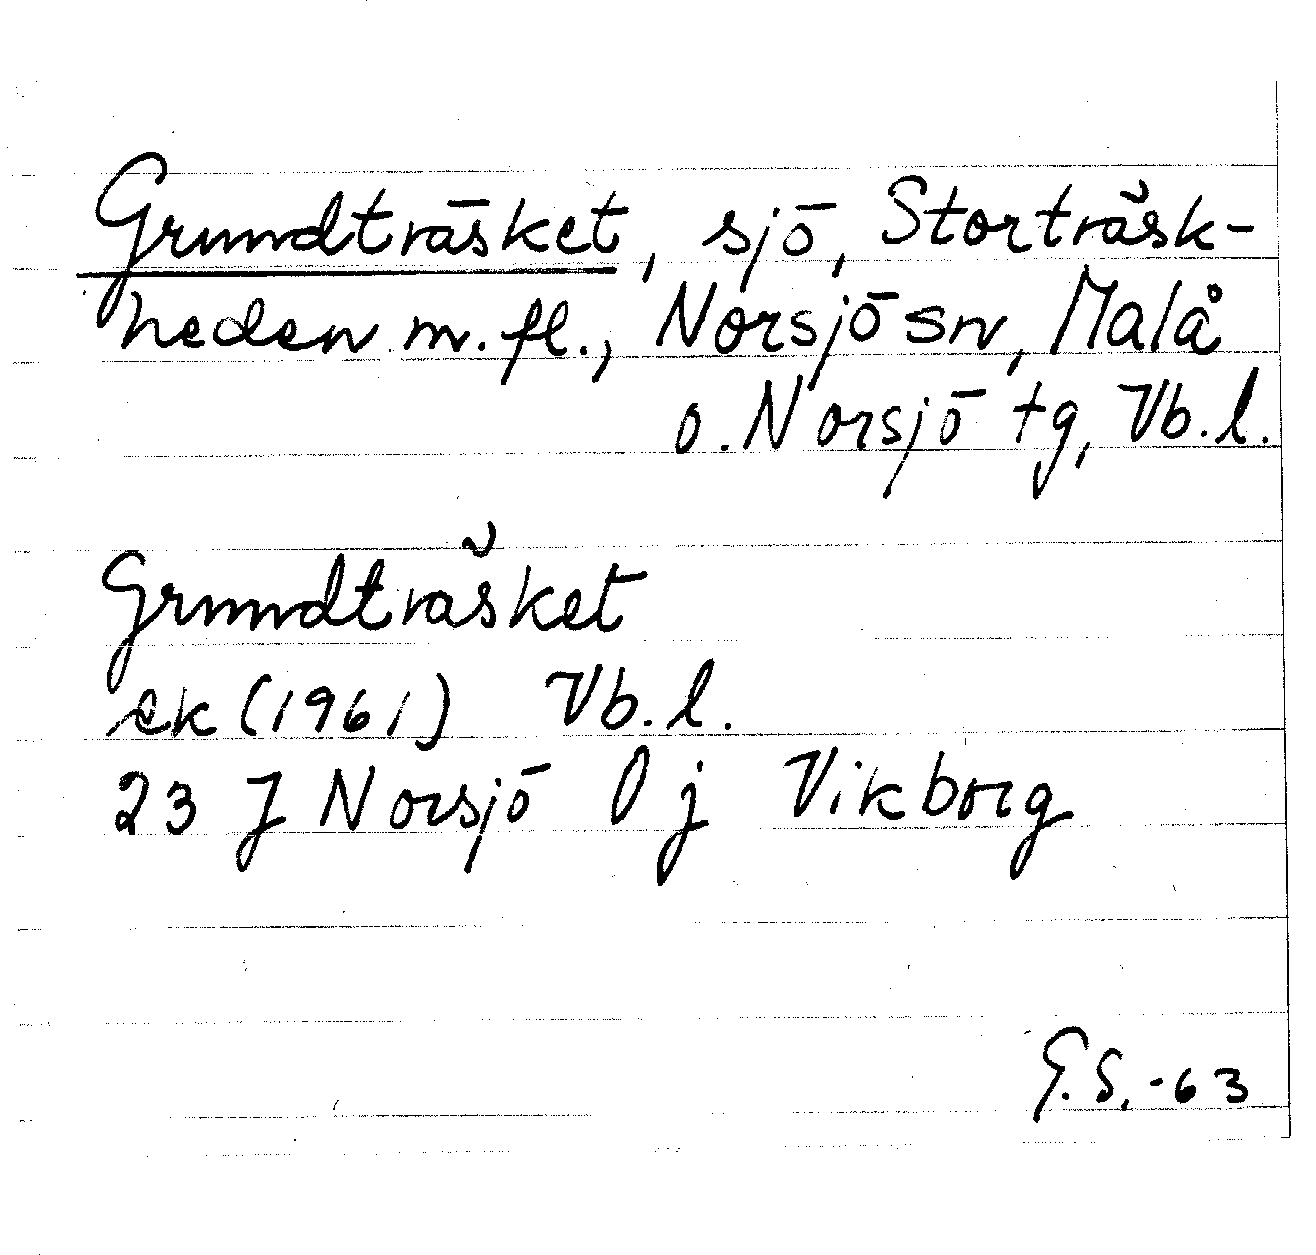 Grundträsket, sjö, Storträsk-
heden m.fl., Norsjö sn, Malå
o. Norsjö tg, Vb.l.
Grundträsket
ek (1961) Vb.l.
23 J Norsjö 0 j Vikborg
G.S.-63